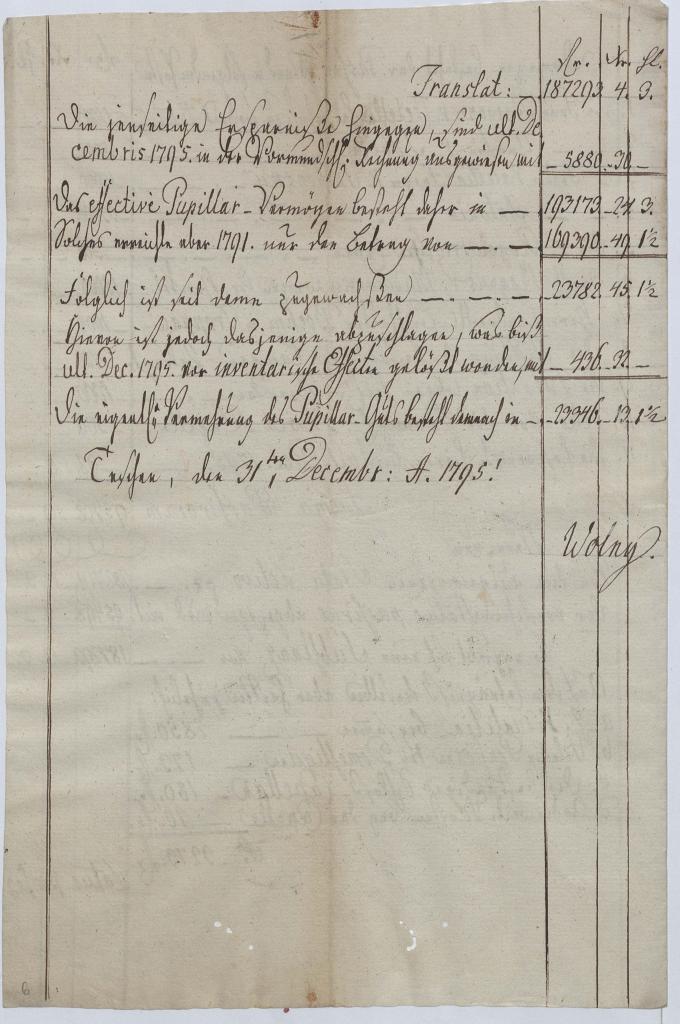 fr. Xr. hl.
Translat: — 187293. 4. 3.
Die jenseitige Ersparniße hingegen, sind ult. De
cembris 1795. in der Vormundschl: Rechnung ausgewiesen mit — 5880. 30 —
Das effective Pupillar-Vermögen besteht daher in — 193173. 24. 3.
Solches erreichte aber 1791. nur den Betrag von — . — 169390. 49. 1½
Folglich ist seit deme zugewachßen — . — . — . — 23782. 45. 1½
Hievon ist jedoch dasjenige abzuschlagen, was biß
ult. Dec. 1795. vor inventarische Effecten gelößt worden, mit — 436. 32. —
Die eigentl: Vermehrung des Pupillar-Guts besteht demnach in — 23346. 13. 1½
Teschen, den 31ten Decembr: A. 1795!
Wolny.
6